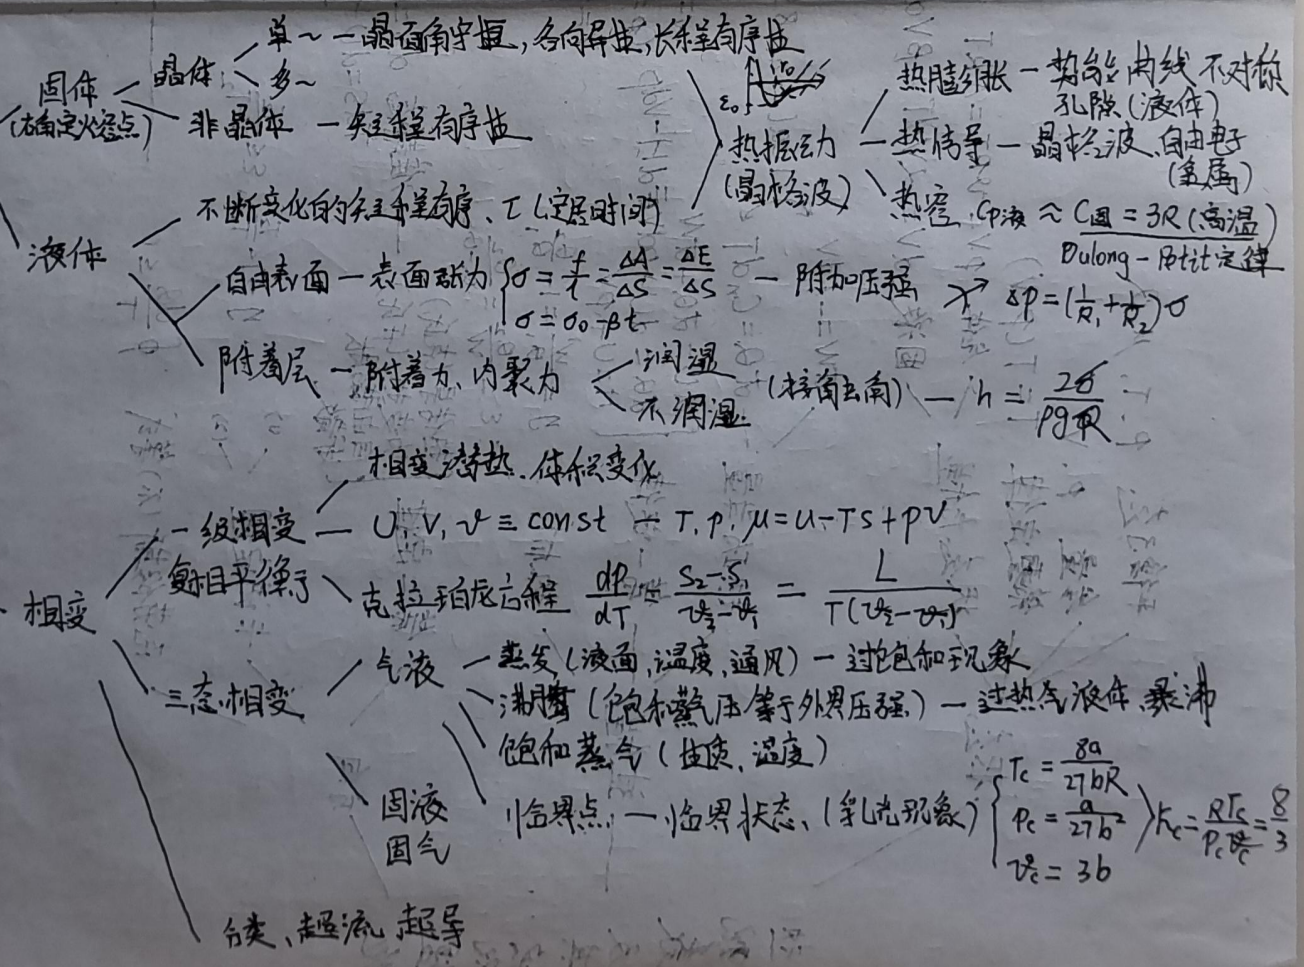 单~ — 晶面角守恒, 各向异性, 长程有序性
固体 — 晶体
多~
(有确定火容点)
非晶体 — 短程有序性
ε₀ r₀
热振动
(晶格波)
热膨胀 — 势能曲线不对称
孔隙(液体)
热传导 — 晶格波、自由电子
(金属)
热容 Cp液 ≈ C固 = 3R (高温)
Dulong-Petit定律
液体
不断变化的短程有序、τ(定居时间)
自由表面 — 表面张力 { σ = f/l = ΔA/ΔS = ΔE/ΔS — 附加压强 Δp = (1/R₁ + 1/R₂)σ
σ = σ₀ - βt
附着层 — 附着力、内聚力
润湿
不润湿
(接触角) — h = 2σ/ρgR
相变
一级相变
复相平衡
相变潜热、体积变化
U, V, ν ≡ const — T, p, μ = u - Ts + pv
克拉珀龙方程 dP/dT = (S₂ - S₁)/(v₂ - v₁) = L/T(v₂ - v₁)
三态相变
气液 — 蒸发(液面、温度、通风) — 过饱和现象
沸腾(饱和蒸气压等于外界压强) — 过热液体、暴沸
饱和蒸气(性质、温度)
临界点 — 临界状态、(乳光现象) { Tc = 8a/27bR
Pc = a/27b²
vc = 3b
Kc = RTc/Pcvc = 8/3
固液
固气
分类、超流、超导